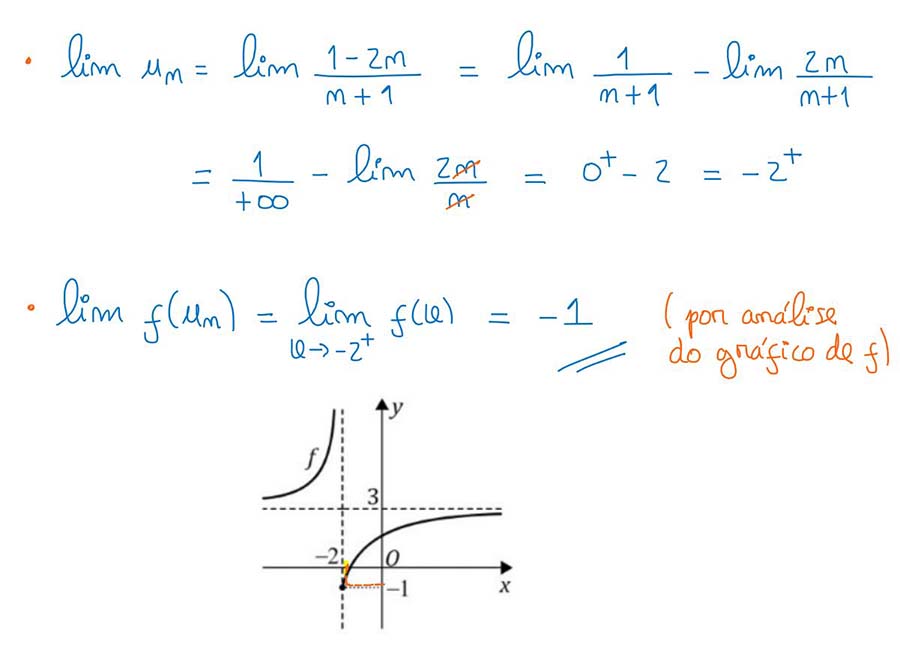 • lim un = lim (1-2n)/(n+1) = lim 1/(n+1) - lim 2n/(n+1)
= 1/+∞ - lim 2n/n = 0⁺ - 2 = -2⁺
• lim f(un) = lim x→-2⁺ f(x) = -1 (por análise
do gráfico de f)
y
f
3
-2 O
-1 x